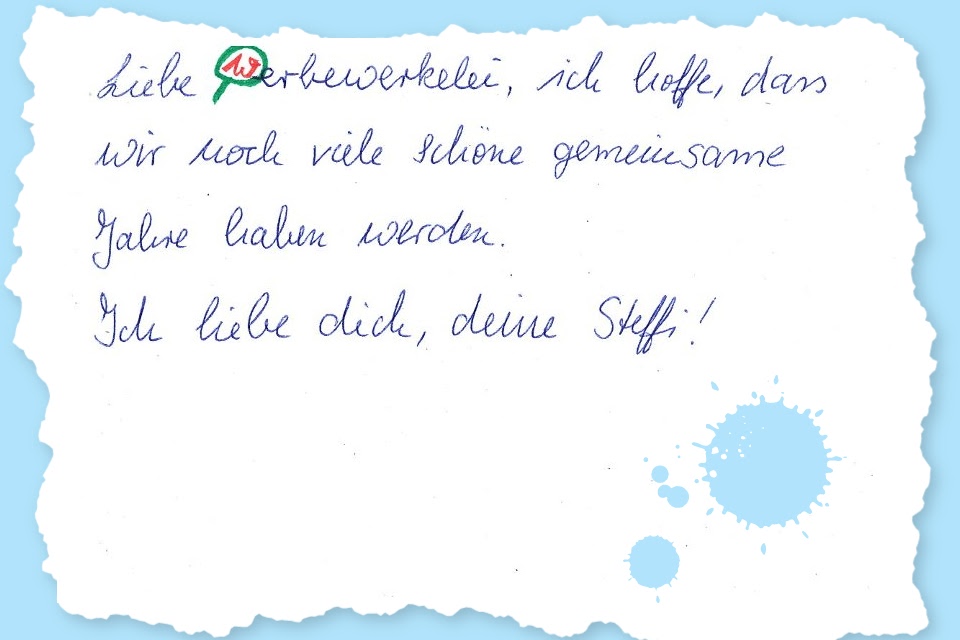 Liebe Werbewerkelei, ich hoffe, dass
wir noch viele schöne gemeinsame
Jahre haben werden.
Ich liebe dich, deine Steffi!